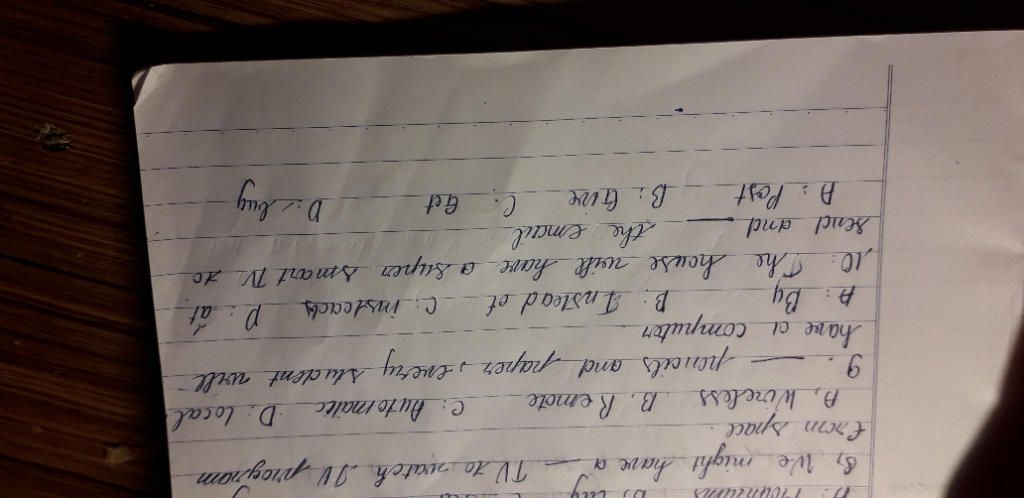 A: Mountains B: City
8, We might have a — TV to watch TV program
from space.
A, Wireless B. Remote C: Automatic D: local
9. — pencils and paper, every student will
have a computer
A: By B: Instead of C: insteads D: at
10: The house will have a super smart TV to
send and — the email
A: Post B: Give C: Get D: buy